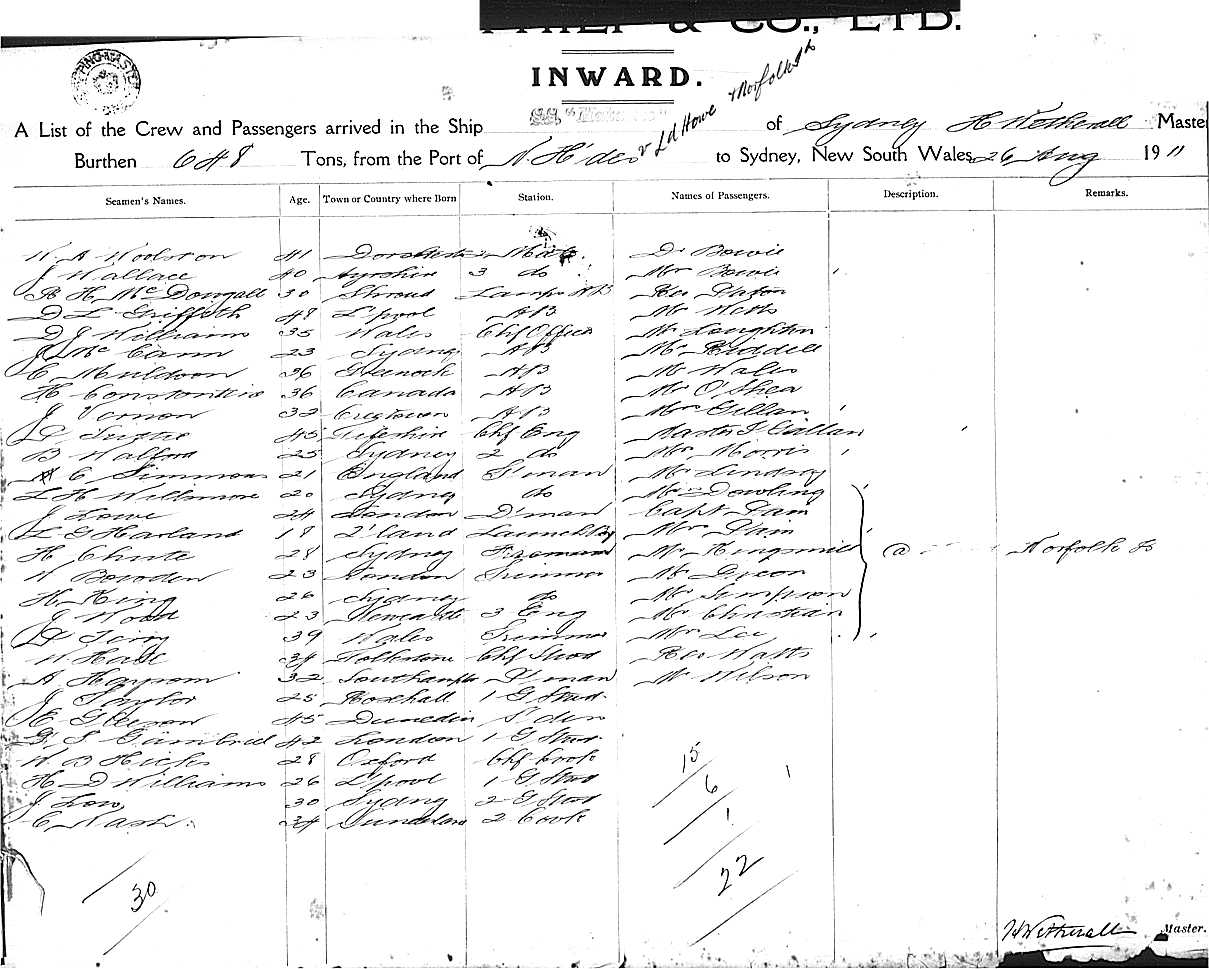 & CO., LTD.
INWARD.
A List of the Crew and Passengers arrived in the Ship of Sydney H Wetherall Master
v Ld Howe & Norfolk Is
Burthen 648 Tons, from the Port of N. H'des to Sydney, New South Wales 26 Aug 1911
Seamen's Names. Age. Town or Country where Born Station. Names of Passengers. Description. Remarks.
W A Woolston 41 2 Mate Dr Bowie
J Wallace 40 Ayrshire 3 do Mrs Bowie
R H McDougall 30 Stroud Lamps AB Rev Paton
D L Griffith 48 L'pool AB Mr Webb
D J Williams 35 Wales Chf Officer Mr Loughlin
J McCann 23 Sydney AB Mr Riddell
C Muldoon 36 Greenock AB Mr Wales
H 36 Canada AB Mr O'Shea
J Vernon 32 AB Mrs Gillan
D 45 Fifeshire Chf Eng Master J Gillan
B Walford 25 Sydney 2 do Mrs Morris
C Simmons 21 England S'man Mr Lindsay
L H Willsmore 20 Sydney do Dowling
J Lowe 24 London D'man Capt Pain
L G Harland 18 Launch Boy Mrs Pain
H Chute 28 Sydney Fireman Mr Kingsmill @ Norfolk Is
W Bowden 23 London Trimmer Mr Dixon
H King 26 Sydney do Mr Simpson
J Wood 23 Newcastle 3 Eng Mr Christian
D 39 Wales Trimmer Mrs Lee
W 39 Folkstone Chf Stwd Rev Watts
A 32 Southampton P'man Mr Wilson
J Taylor 25 1 G Stwd
E Gleeson 45 Dunedin S'dess
G S Gambriel 42 London 1 G Stwd
W B Hicks 28 Oxford Chf Cook
H D Williams 26 L'pool 1 G Stwd
J Low 30 Sydney 2 G Stwd
C Nash 34 2 Cook
15
6
1
22
30
H Wetherall Master.